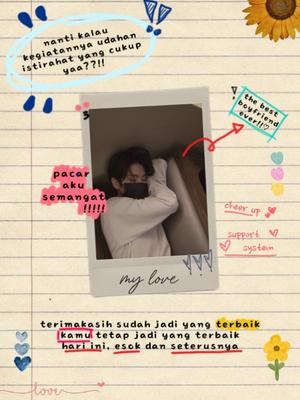 nanti kalau
kegiatannya udahan
istirahat yang cukup
yaa??!!
the best
boyfriend
ever!!♡
pacar
aku
semangat
!!!!!
cheer up
support
system
my love
terimakasih sudah jadi yang terbaik
kamu tetap jadi yang terbaik
hari ini, esok dan seterusnya
love